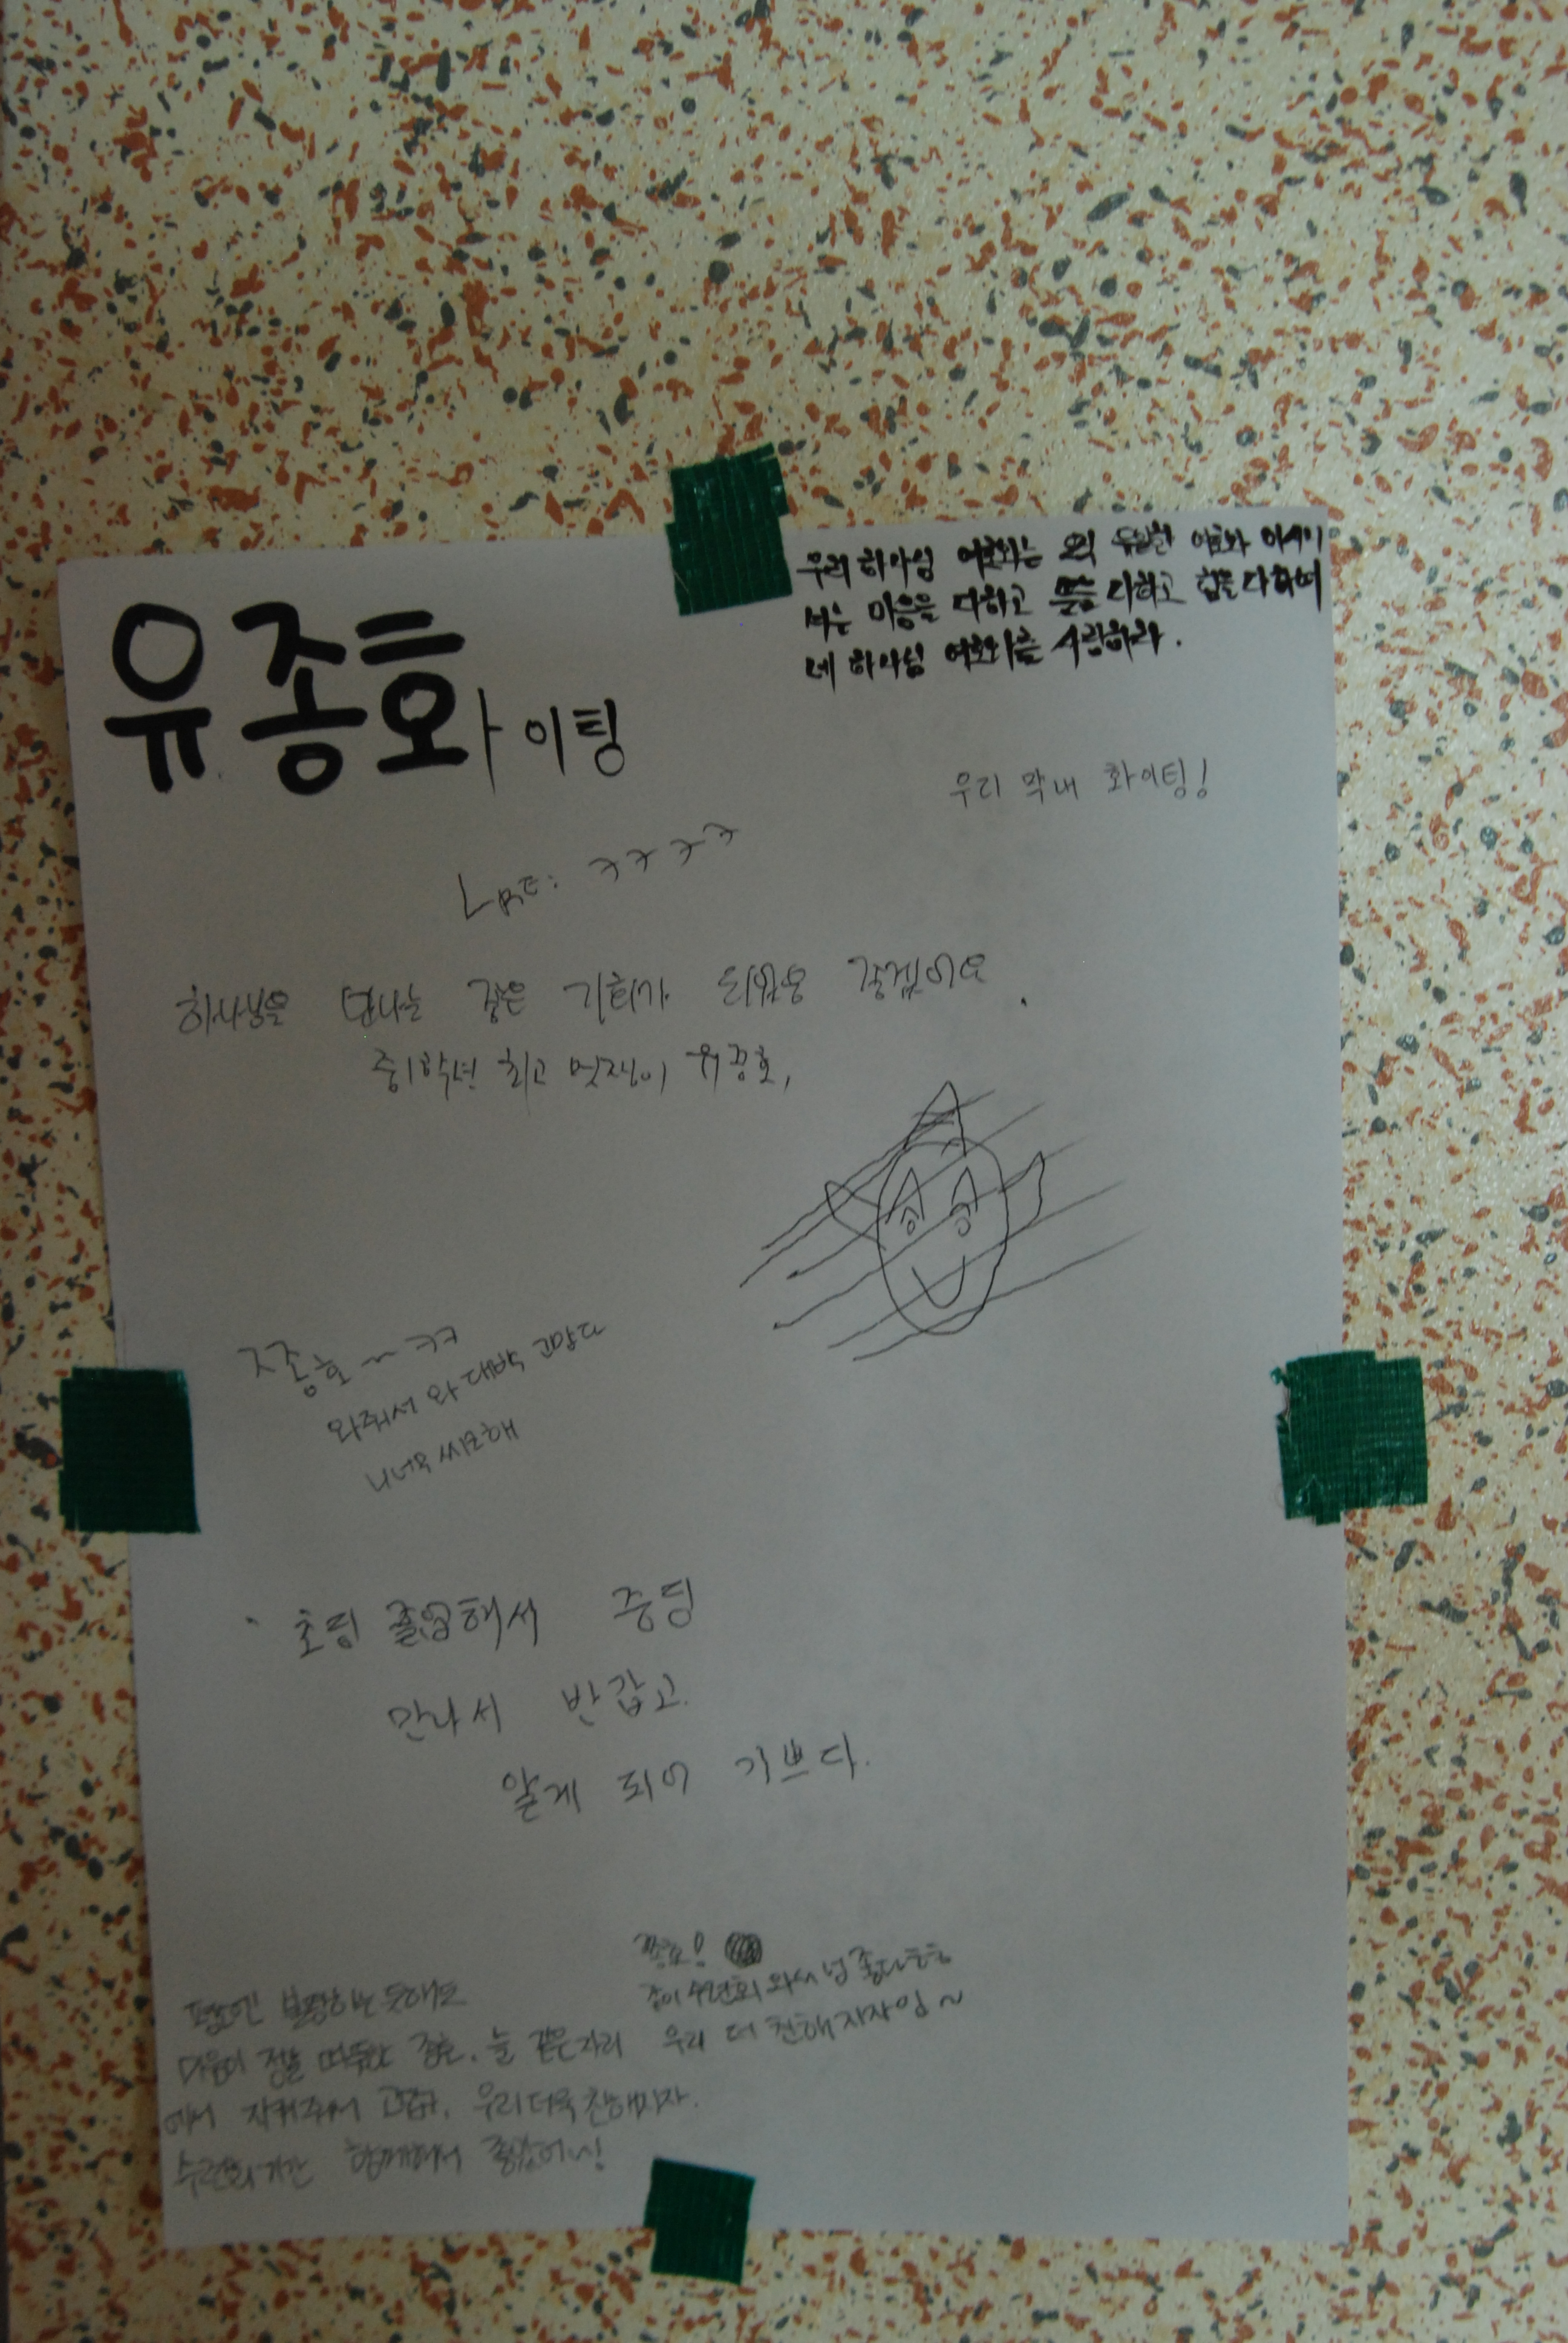 유종화이팅
우리 하나님 여호와는 오직 유일한 여호와 이시니
너는 마음을 다하고 뜻을 다하고 힘을 다하여
네 하나님 여호와를 사랑하라.
우리 막내 화이팅!
ㅋㅋㅋㅋ
하나님을 만나는 좋은 기회가 되었음 좋겠어요.
중1학년 최고 멋쟁이 유종호,
ㅈ종호~ㅋㅋ
와줘서 와 대박 고맙다
니 너무 씨크해
초딩 졸업해서 중딩
만나서 반갑고.
알게 되어 기쁘다.
종호!
수련회 와서 넘 좋다ㅎㅎ
우리 더 친해지자잉~
듯해도
마음이 정말 따뜻한 종호. 늘 같은자리
에서 지켜줘서 고맙다. 우리 더욱 친해지자.
수련회 기간 함께해서 좋았어!